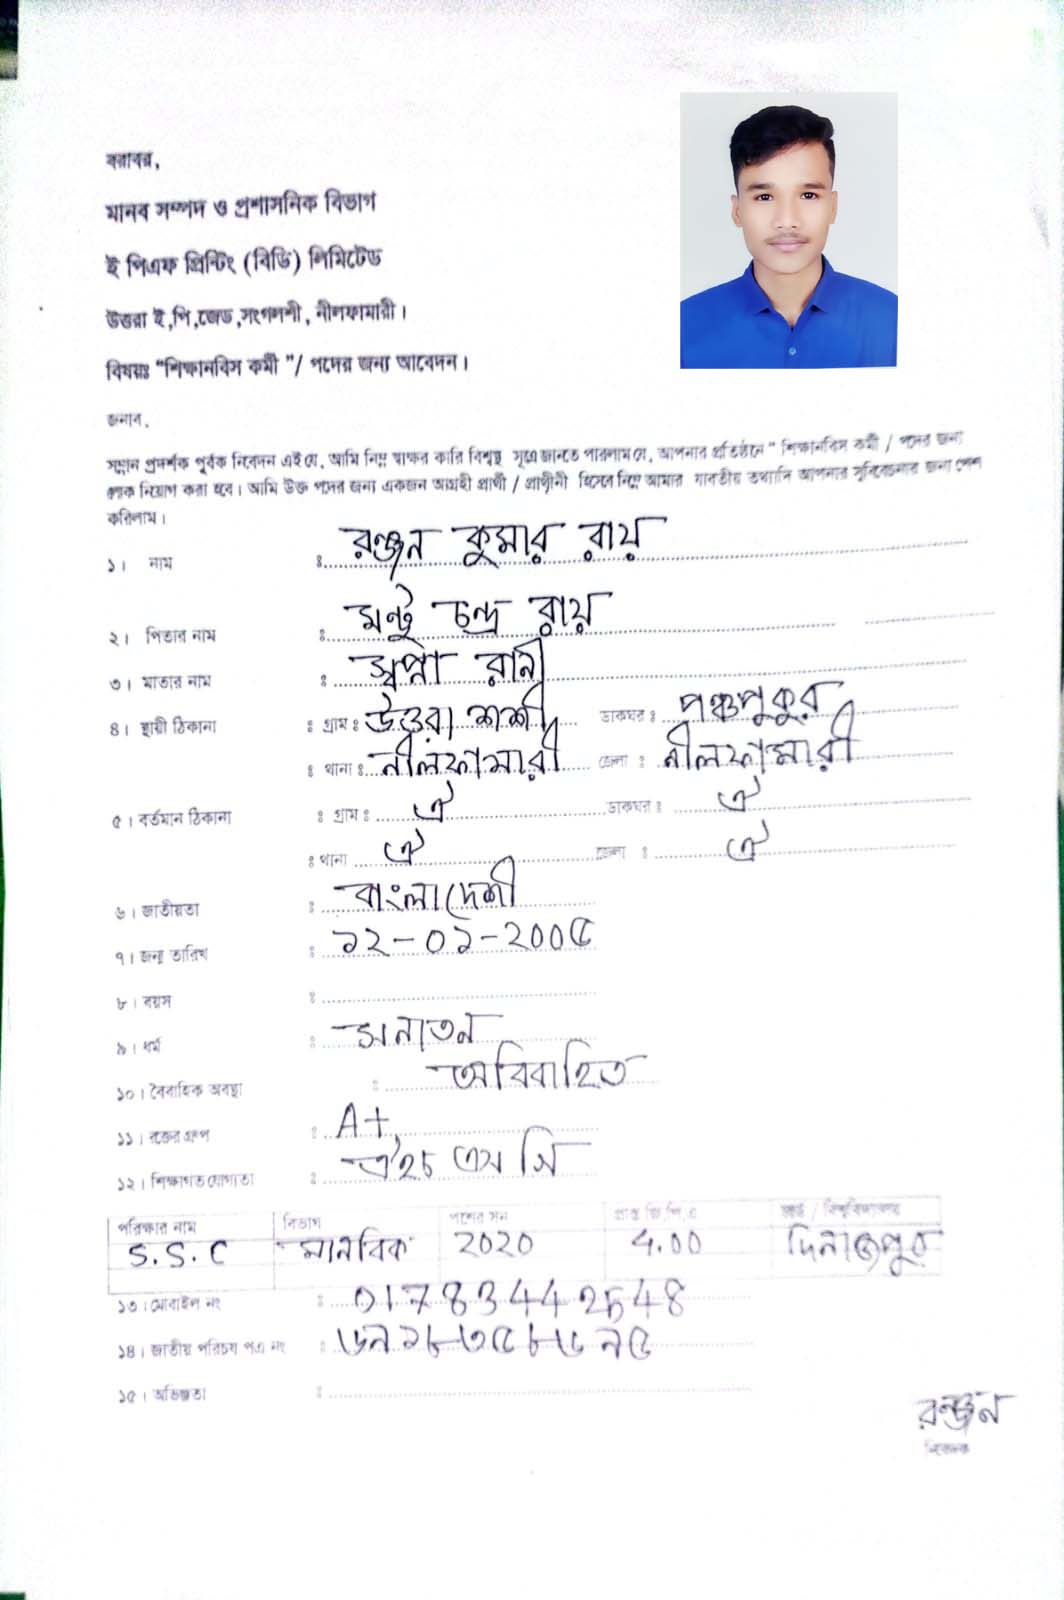 বরাবর,
মানব সম্পদ ও প্রশাসনিক বিভাগ
ই পিএফ প্রিন্টিং (বিডি) লিমিটেড
উত্তরা ই,পি,জেড,সংগলশী, নীলফামারী।
বিষয়ঃ “শিক্ষানবিস কর্মী ”/ পদের জন্য আবেদন।
জনাব,
সম্মান প্রদর্শক পূর্বক নিবেদন এই যে, আমি নিম্ন স্বাক্ষর কারি বিশ্বস্থ সূত্রে জানতে পারলাম যে, আপনার প্রতিষ্ঠনে “ শিক্ষানবিস কর্মী / পদের জন্য
লোক নিয়োগ করা হবে। আমি উক্ত পদের জন্য একজন আগ্রহী প্রার্থী / প্রার্থীনী হিসেবে নিম্নে আমার যাবতীয় তথ্যাদি আপনার সুবিবেচনার জন্য পেশ
করিলাম।
১। নাম : রঞ্জন কুমার রায়
২। পিতার নাম : মন্টু চন্দ্র রায়
৩। মাতার নাম : স্বপ্না রানী
৪। স্থায়ী ঠিকানা : গ্রাম : উত্তরা শশী ডাকঘর : পঞ্চপুকুর
: থানা : নীলফামারী জেলা : নীলফামারী
৫। বর্তমান ঠিকানা : গ্রাম : ঐ ডাকঘর : ঐ
: থানা ঐ জেলা : ঐ
৬। জাতীয়তা : বাংলাদেশী
৭। জন্ম তারিখ : ১২-০১-২০০৫
৮। বয়স :
৯। ধর্ম : সনাতন
১০। বৈবাহিক অবস্থা : অবিবাহিত
১১। রক্তের গ্রুপ : A+
১২। শিক্ষাগত যোগ্যতা : এইচ এস সি
পরিক্ষার নাম বিভাগ পাশের সন প্রাপ্ত জি,পি,এ বোর্ড / বিশ্ববিদ্যালয়
S.S.C মানবিক 2020 4.00 দিনাজপুর
১৩। মোবাইল নং : 01783442548
১৪। জাতীয় পরিচয় পত্র নং : ৬৮১৮৩৫৮৬৮৫
১৫। অভিজ্ঞতা :
রঞ্জন
নিবেদক